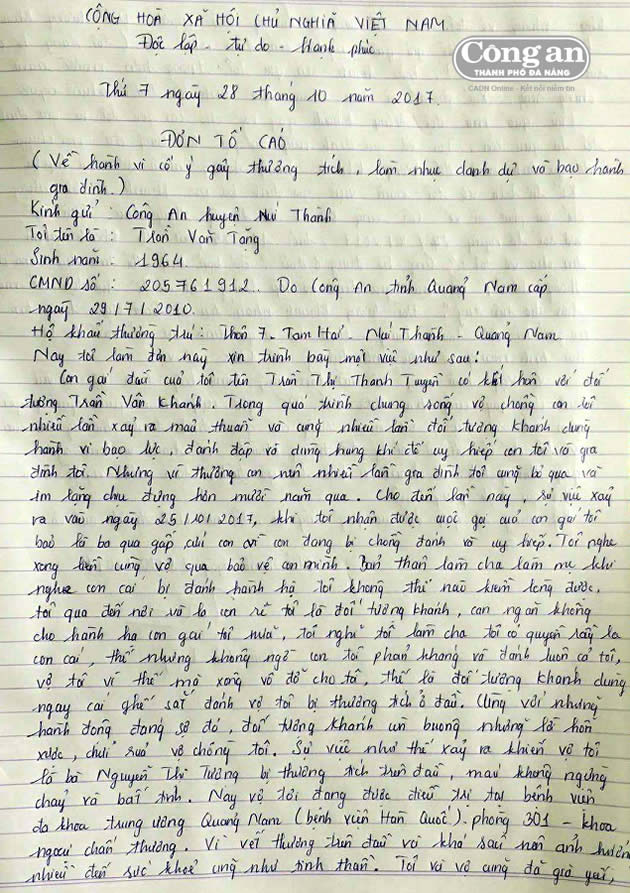 CỘNG HOÀ XÃ HỘI CHỦ NGHĨA VIỆT NAM
Độc lập - tự do - Hạnh phúc
Công an
THÀNH PHỐ ĐÀ NẴNG
CADN Online - Kết nối niềm tin
Thứ 7 ngày 28 tháng 10 năm 2017.
ĐƠN TỐ CÁO
(Về hành vi cố ý gây thương tích, làm nhục danh dự và bạo hành
gia đình.)
Kính gửi: Công An huyện Núi Thành
Tôi tên là: Trần Văn Tặng
Sinh năm: 1964.
CMND số: 205761912. Do Công An tỉnh Quảng Nam cấp
ngày 29/7/2010.
Hộ khẩu thường trú: Thôn 7 - Tam Hải - Núi Thành - Quảng Nam
Nay tôi làm đơn này xin trình bày một việc như sau:
Con gái đầu của tôi tên Trần Thị Thanh Tuyền có kết hôn với đối
tượng Trần Văn Khánh. Trong quá trình chung sống vợ chồng con tôi
nhiều lần xảy ra mâu thuẫn và cũng nhiều lần đối tượng Khánh dùng
hành vi bạo lực, đánh đập và dùng hung khí để uy hiếp con tôi và gia
đình tôi. Nhưng vì thương con nên nhiều lần gia đình tôi cũng bỏ qua và
im lặng chịu đựng hơn mười năm qua. Cho đến lần này, sự việc xảy
ra vào ngày 25/10/2017, khi tôi nhận được cuộc gọi của con gái tôi
bảo là ba qua gấp, cứu con với con đang bị chồng đánh và uy hiếp. Tôi nghe
xong liền cùng vợ qua bảo vệ con mình. Bản thân làm cha làm mẹ khi
nghe con cái bị đánh hành hạ tôi không thể nào kiềm lòng được,
tôi qua đến nơi và la con rể tôi là đối tượng Khánh, can ngăn không
cho hành hạ con gái tôi nữa, tôi nghĩ tôi làm cha tôi có quyền rầy la
con cái, thế nhưng không ngờ con tôi phản kháng và đánh luôn cả tôi,
vợ tôi vì thế mà xông vô đỡ cho tôi, thế là đối tượng Khánh dùng
ngay cái ghế sắt đánh vợ tôi bị thương tích ở đầu. Cùng với những
hành động đáng sợ đó, đối tượng Khánh còn buông những lời hỗn
xược, chửi rủa vợ chồng tôi. Sự việc như thế xảy ra khiến vợ tôi
là bà Nguyễn Thị Tường bị thương tích trên đầu, máu không ngừng
chảy và bất tỉnh. Nay vợ tôi đang được điều trị tại bệnh viện
đa khoa trung ương Quảng Nam (bệnh viện Hàn Quốc) phòng 301 - khoa
ngoại chấn thương. Vì vết thương trên đầu và khá sâu nên ảnh hưởng
nhiều đến sức khoẻ cũng như tinh thần. Tôi và vợ cũng đã già yếu,